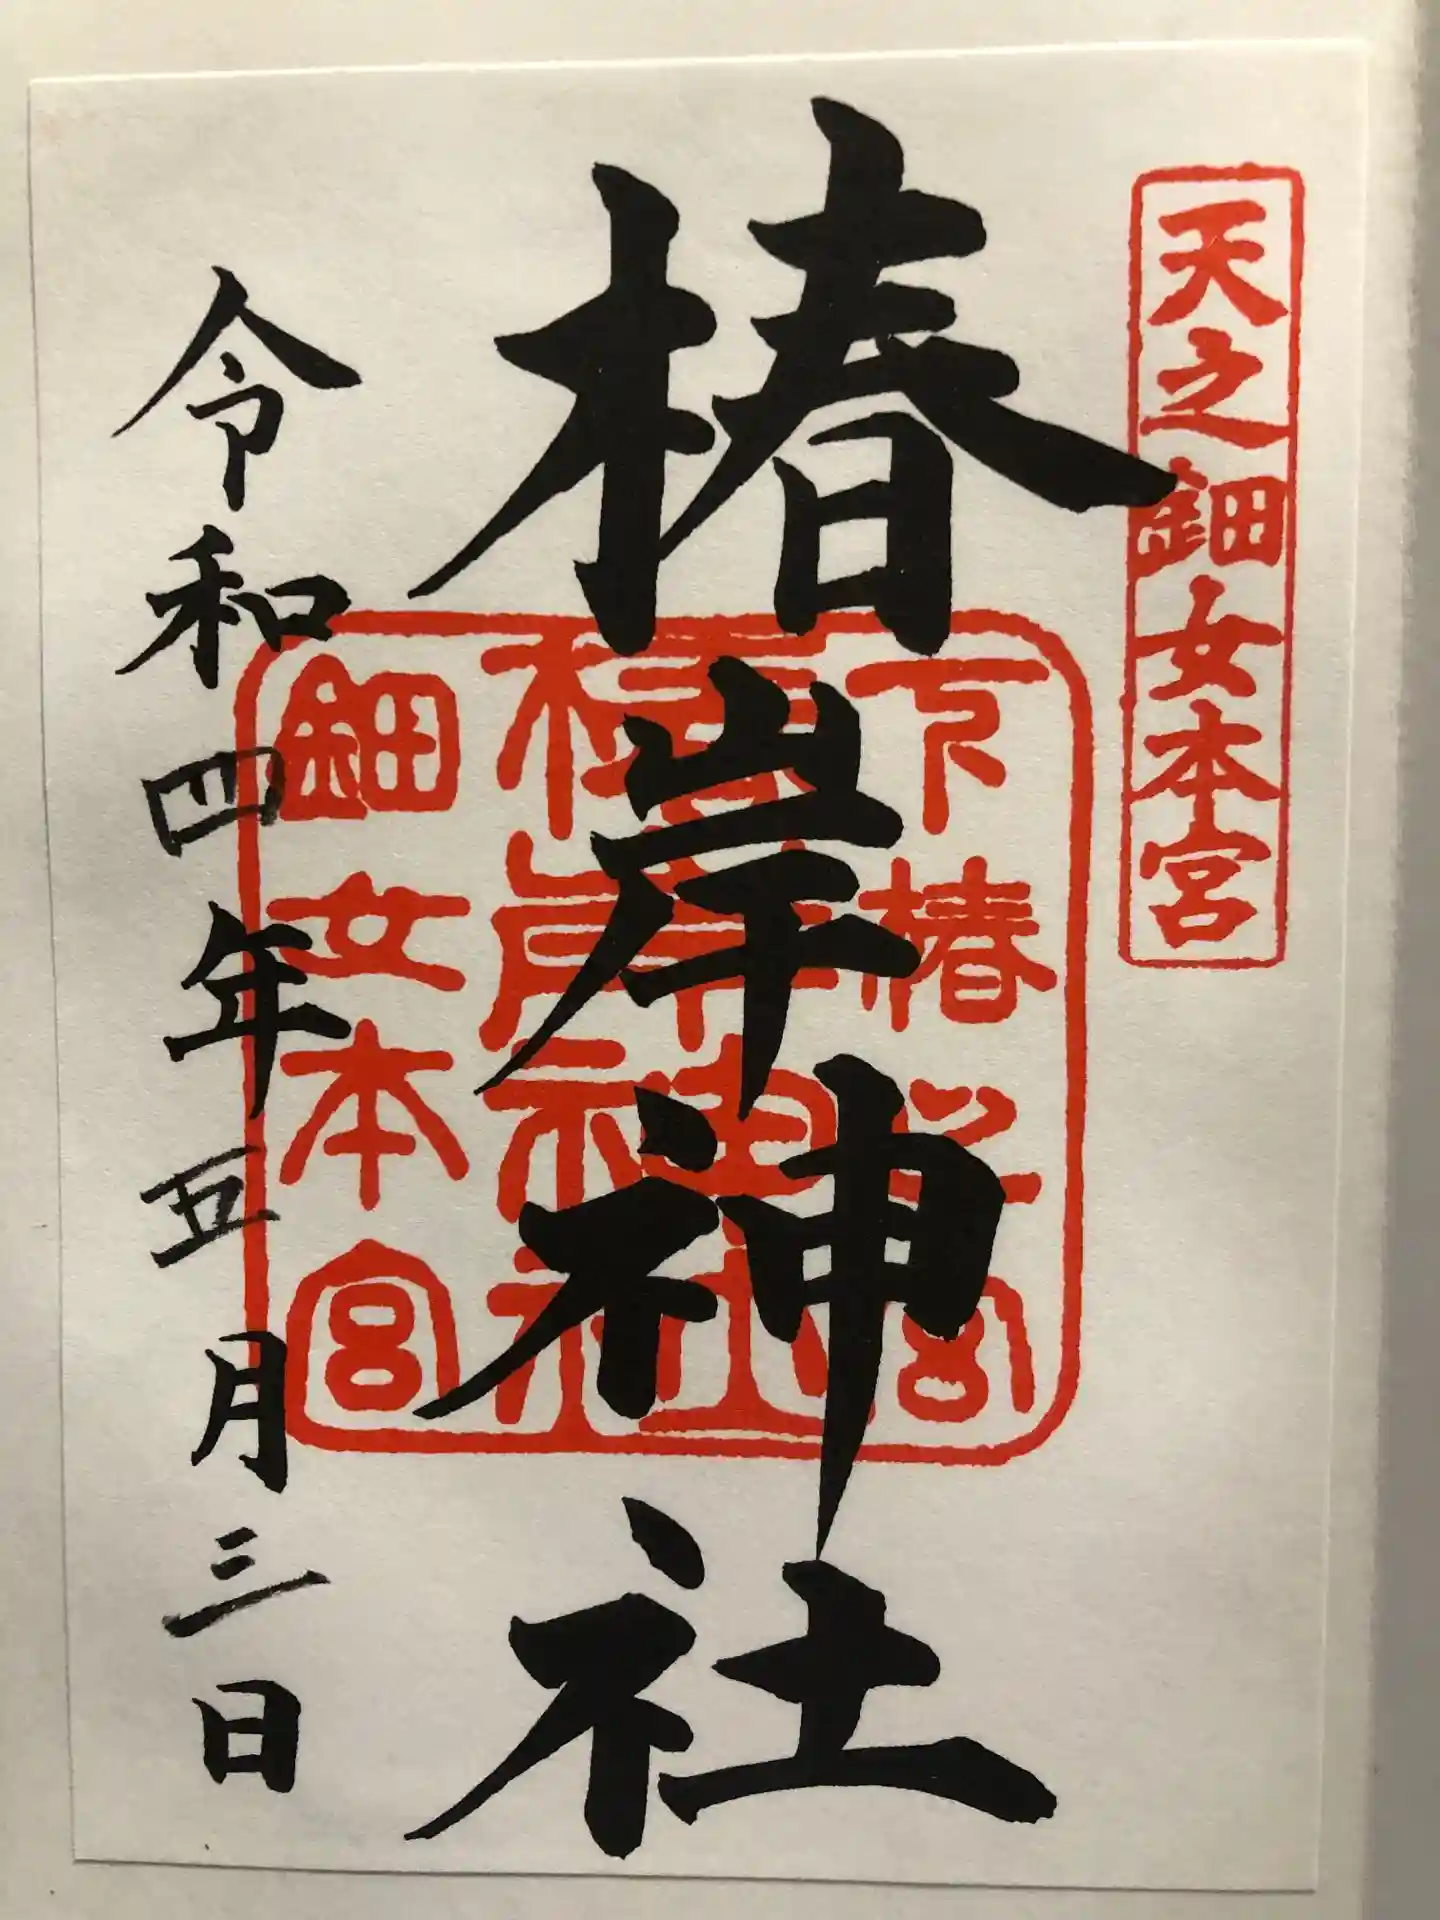 天之鈿女本宮
椿岸神社
下椿
椿岸神社
鈿女本宮
令和四年五月三日